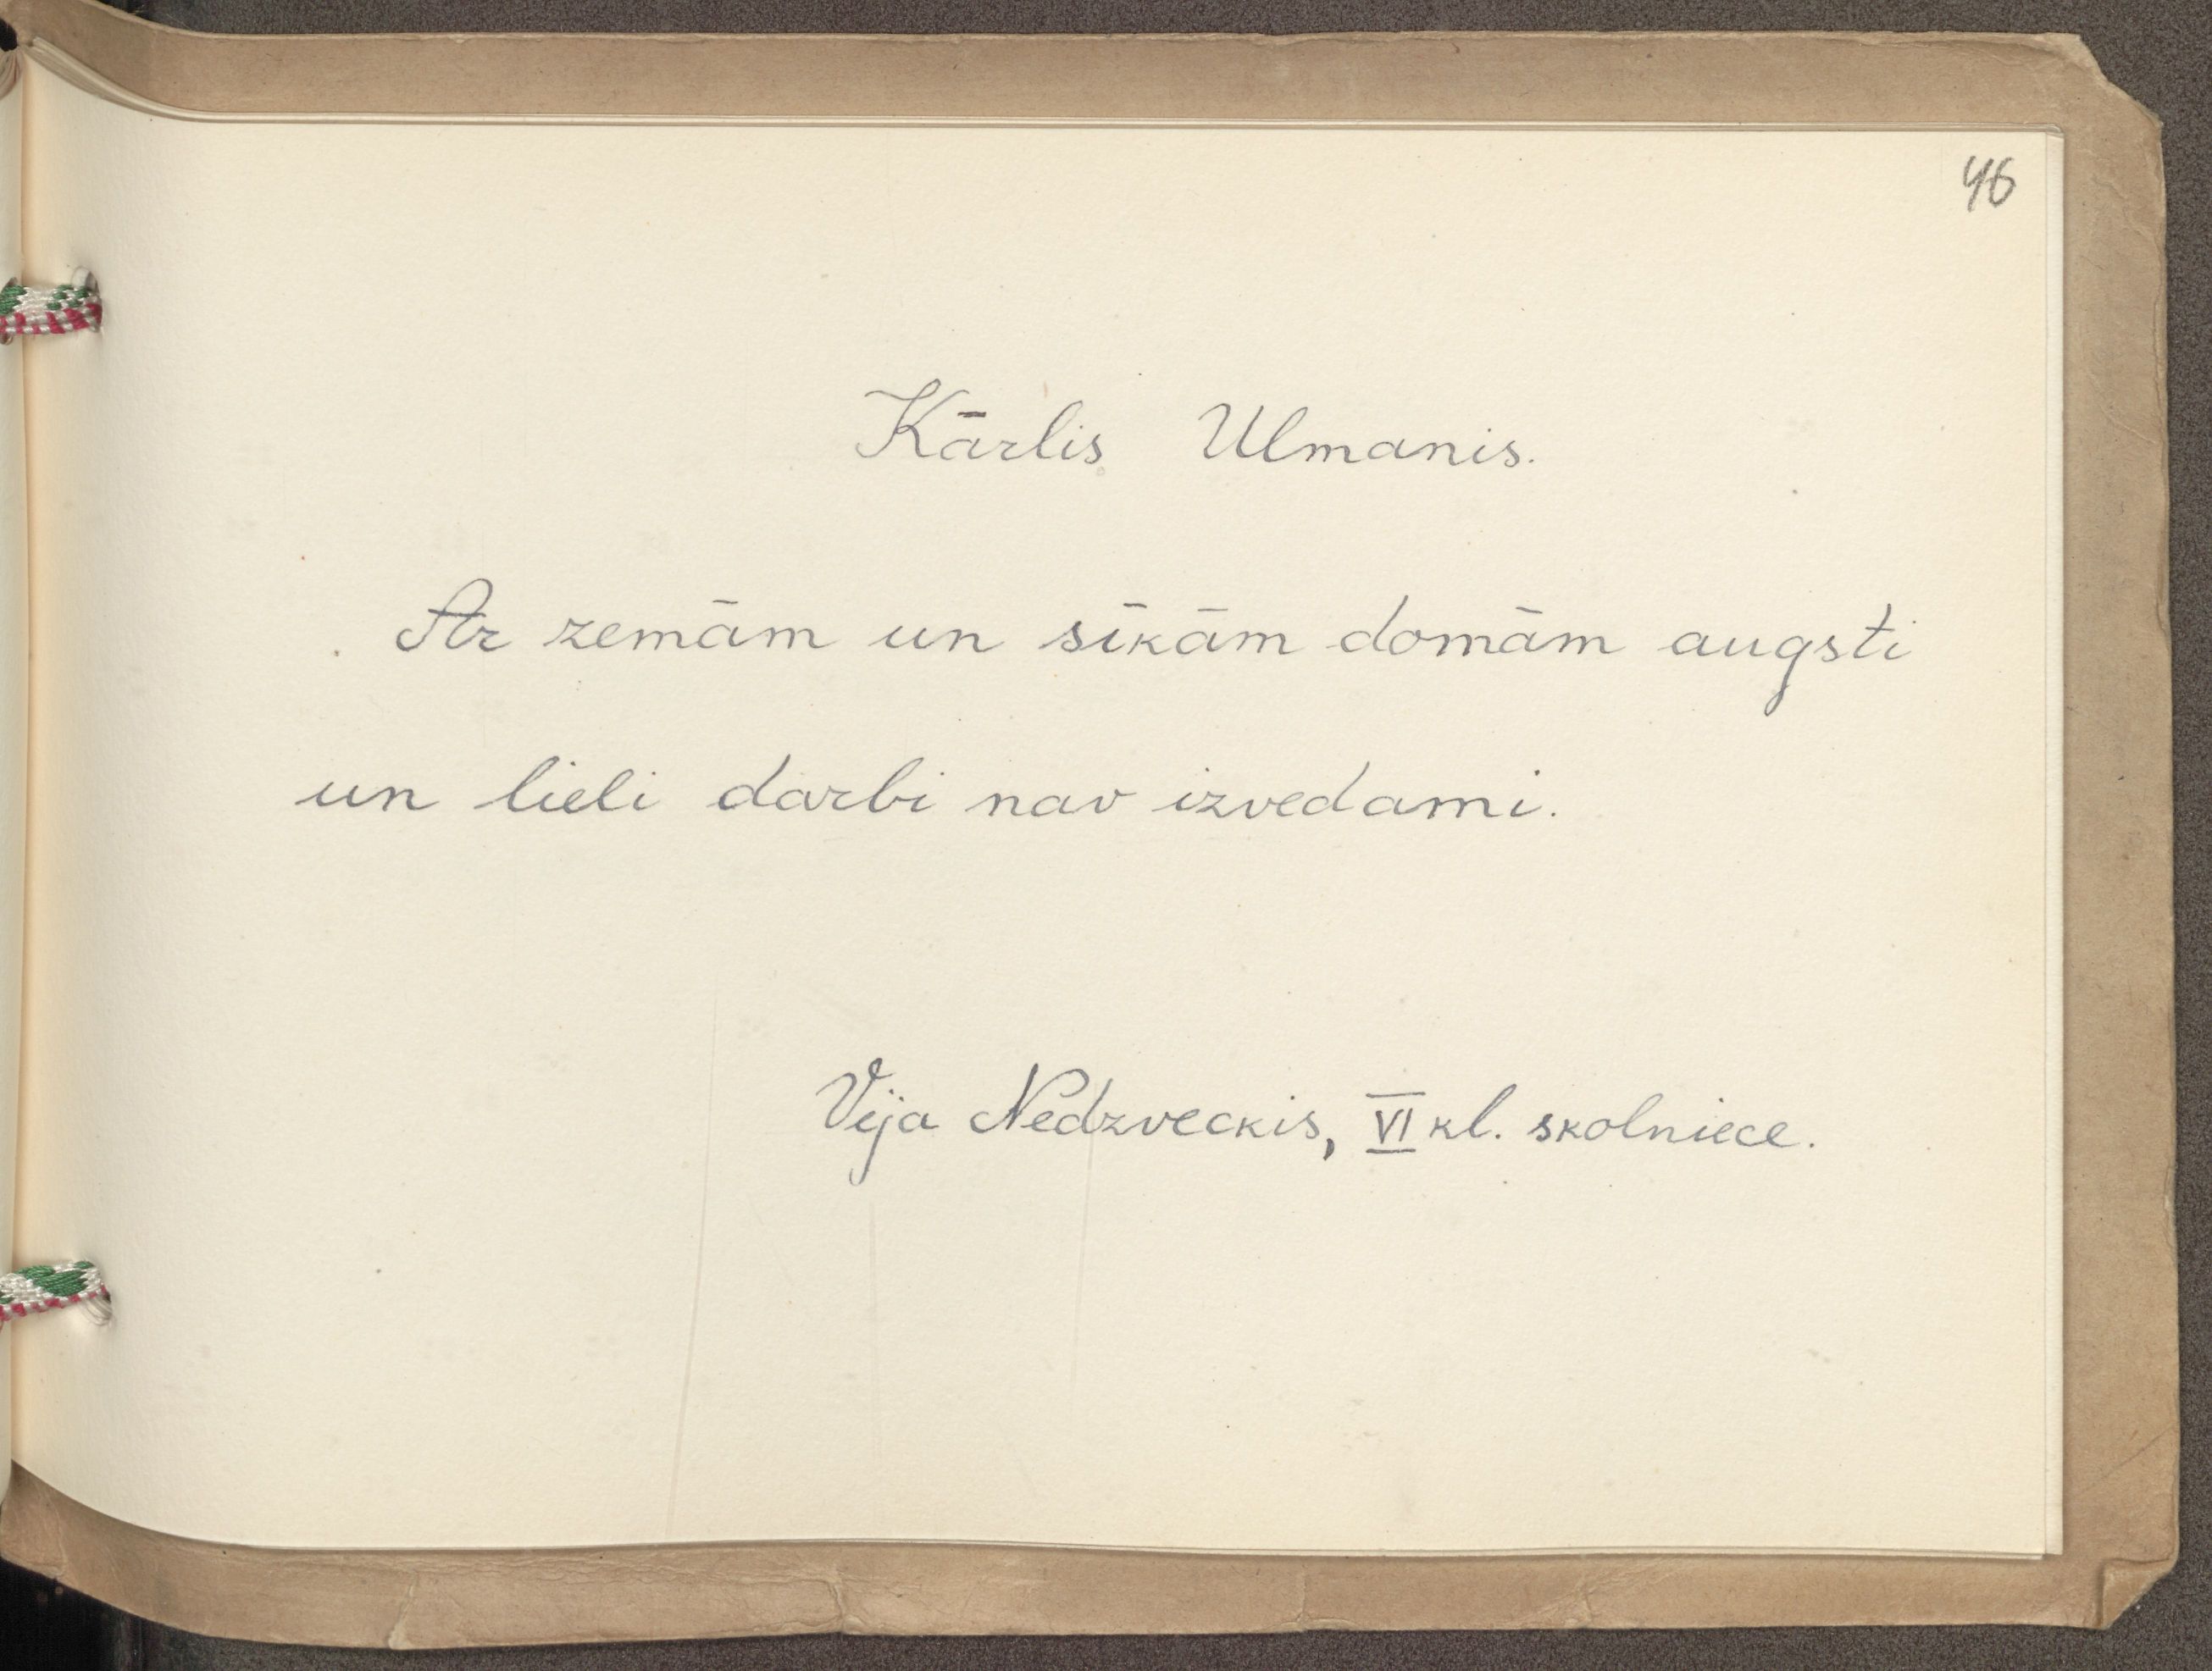 46
Kārlis Ulmanis.
Ar zemām un sīkām domām augsti
un lieli darbi nav izvedami.
Vija Nedzveckis, VI kl. skolniece.